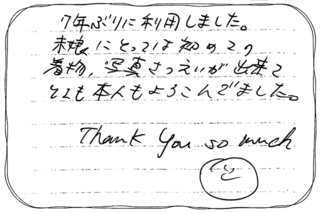 7年ぶりに利用しました。
末娘にとっては初めての
着物、写真さつえいが出来て
とても本人もよろこんでました。
Thank you so much